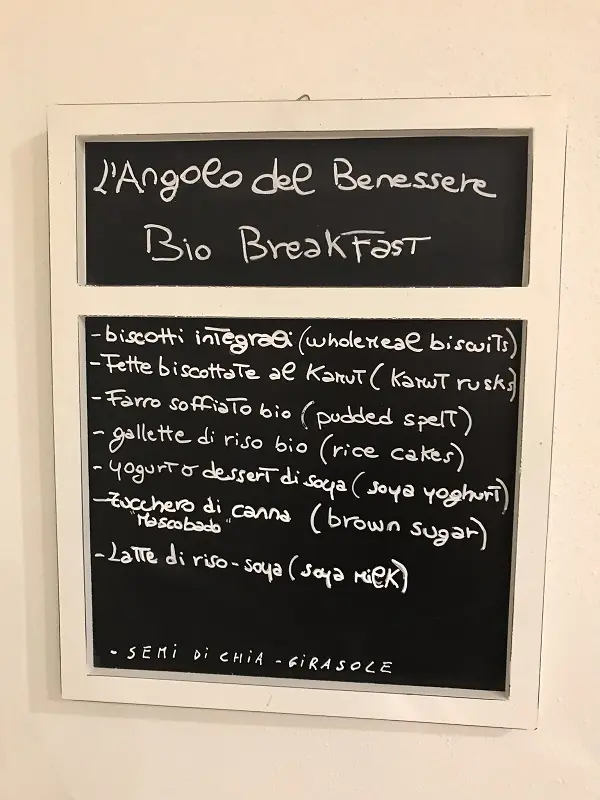 L'Angolo del Benessere
Bio BreakFast
- biscotti integrali (wholemeal biscuits)
- Fette biscottate al Kamut (Kamut rusks)
- Farro soffiato bio (pudded spelt)
- gallette di riso bio (rice cakes)
- yogurt o dessert di soya (soya yoghurt)
- zucchero di canna (brown sugar)
"Mascobado"
- Latte di riso-soya (soya milk)
- SEMI DI CHIA - GIRASOLE